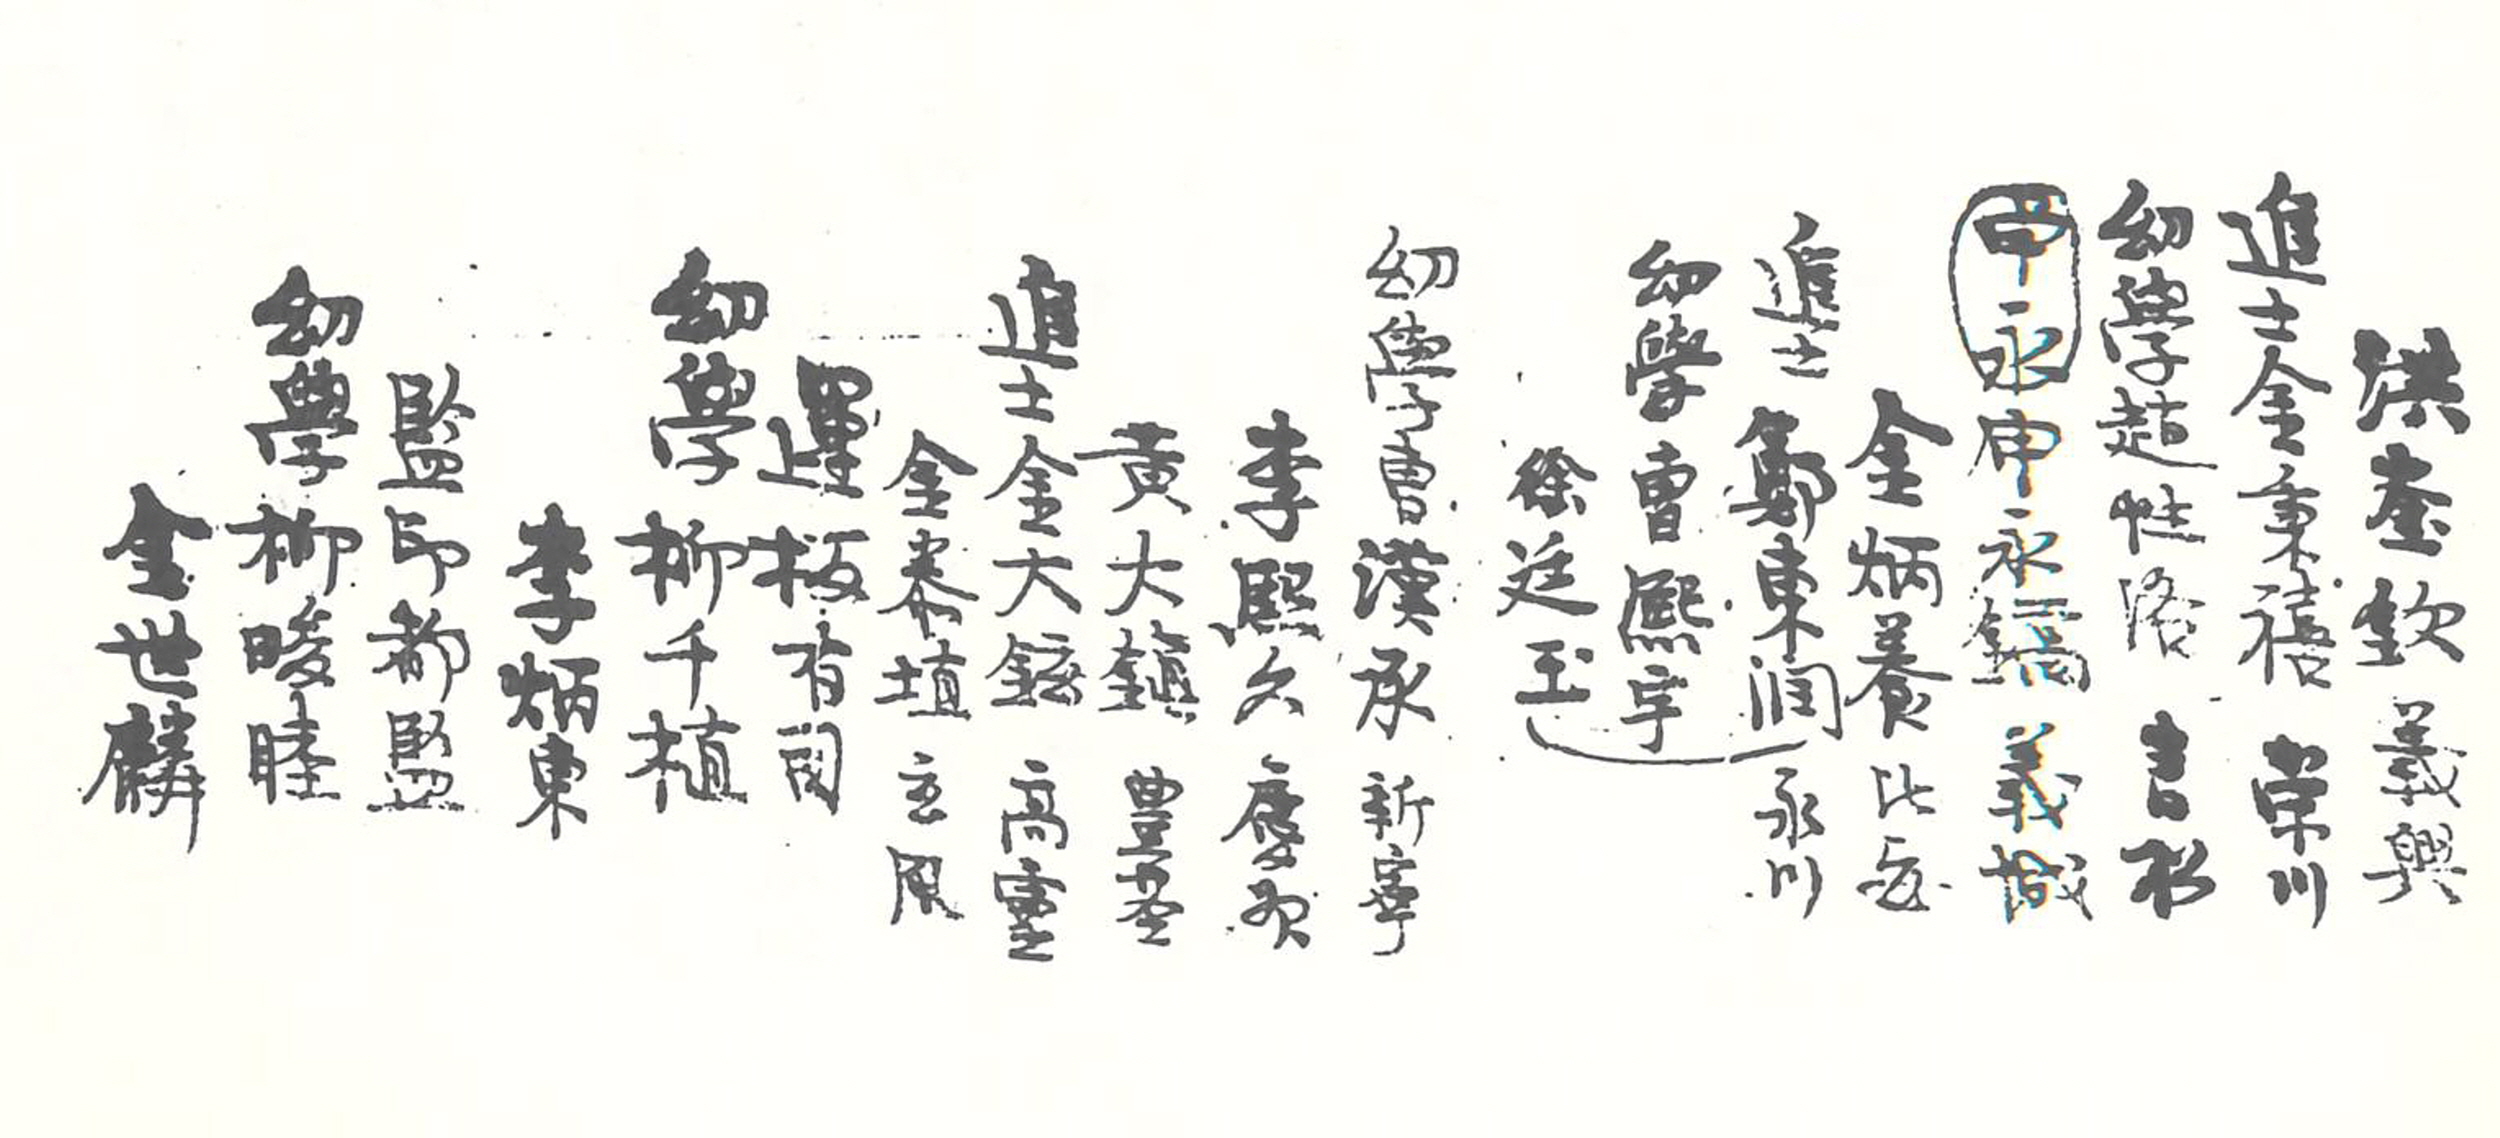 洪奎欽 義興
進士金秉禧 榮川
幼學趙性洛 青松
申永
申永鏑 義城
金炳養 比安
進士 鄭東潤 永川
幼學 曺熙宇
徐廷玉
幼學曺漢承 新寧
李熙久 慶州
黃大鎮 豊基
進士金大鎔 高靈
金泰埴 玄風
運板有司
幼學 柳千植
李炳東
監印都監
幼學 柳晙睦
金世麟